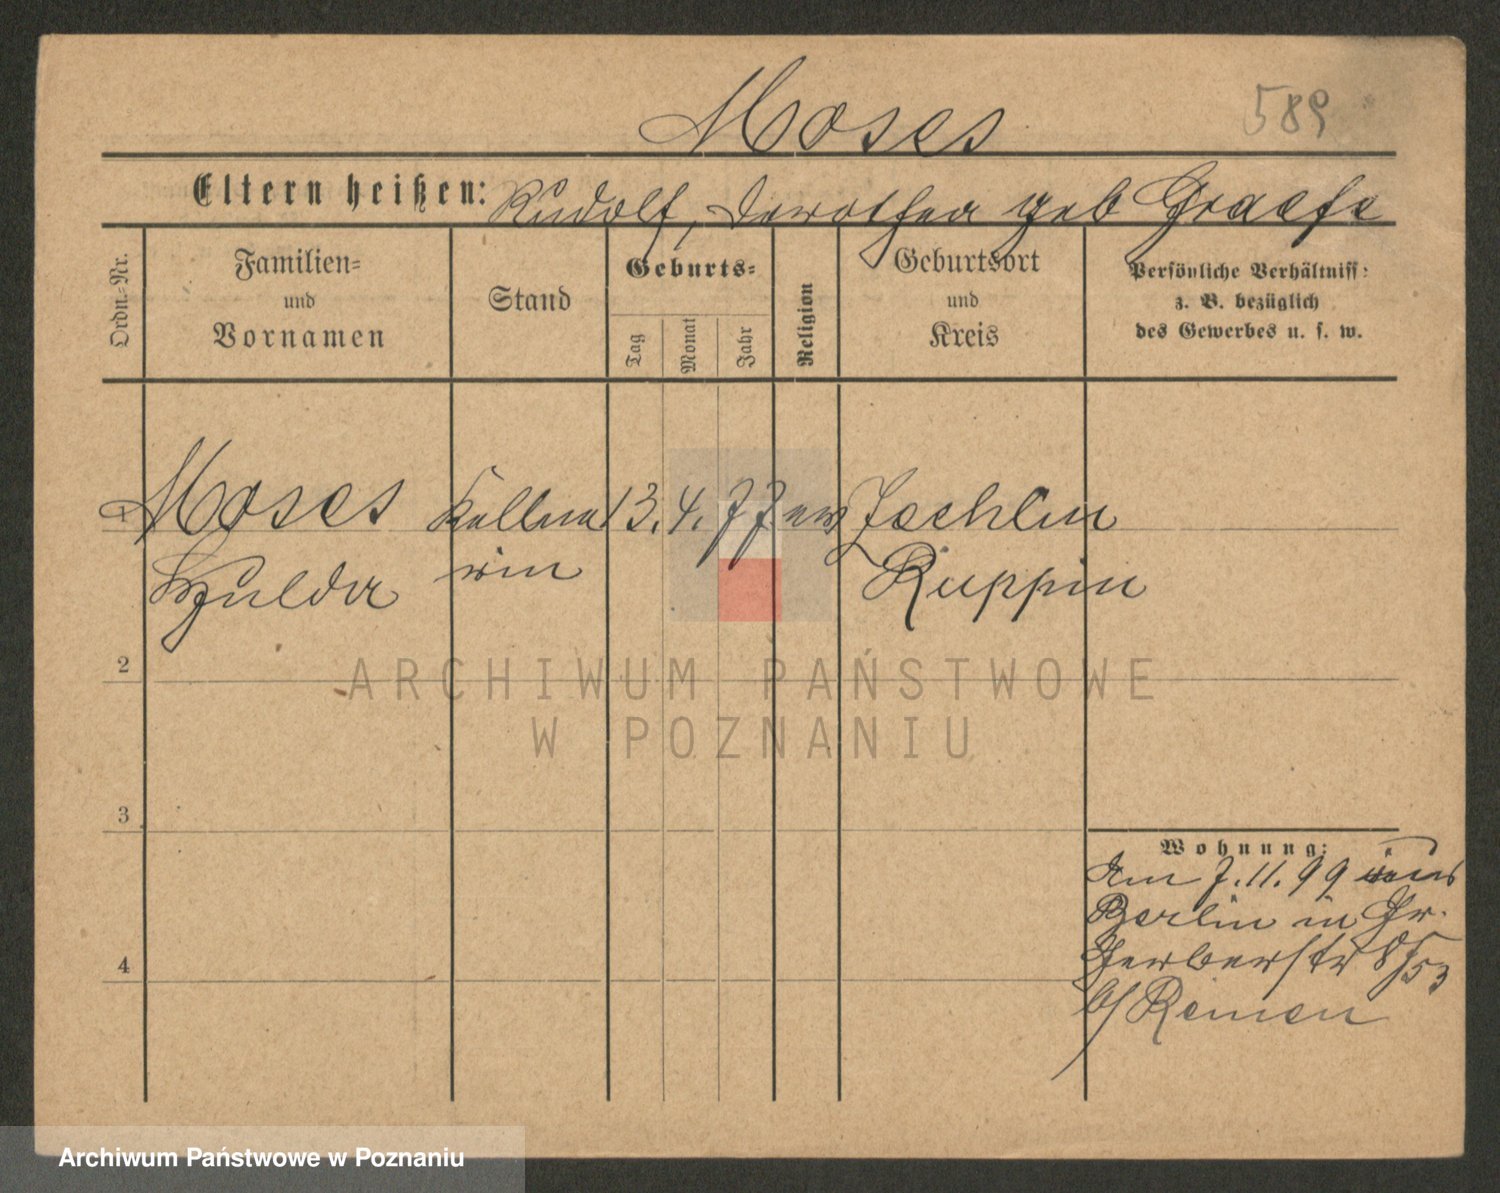 Moses
589
Eltern heißen: Rudolf, Dorothea geb Graefe
Ordn.-Nr.
Familien-
und
Vornamen
Stand
Geburts-
Tag
Monat
Jahr
Religion
Geburtsort
und
Kreis
Persönliche Verhältniss:
z. B. bezüglich
des Gewerbes u. s. w.
1
Moses Kellne 13. 4. 77 ev Zechlin
Hulda rin Ruppin
2
ARCHIWUM PAŃSTWOWE
W POZNANIU
3
Wohnung:
Am 7. 11. 99 aus
Berlin in Gr.
Gerberstr 8/53
b/ Reimen
4
Archiwum Państwowe w Poznaniu